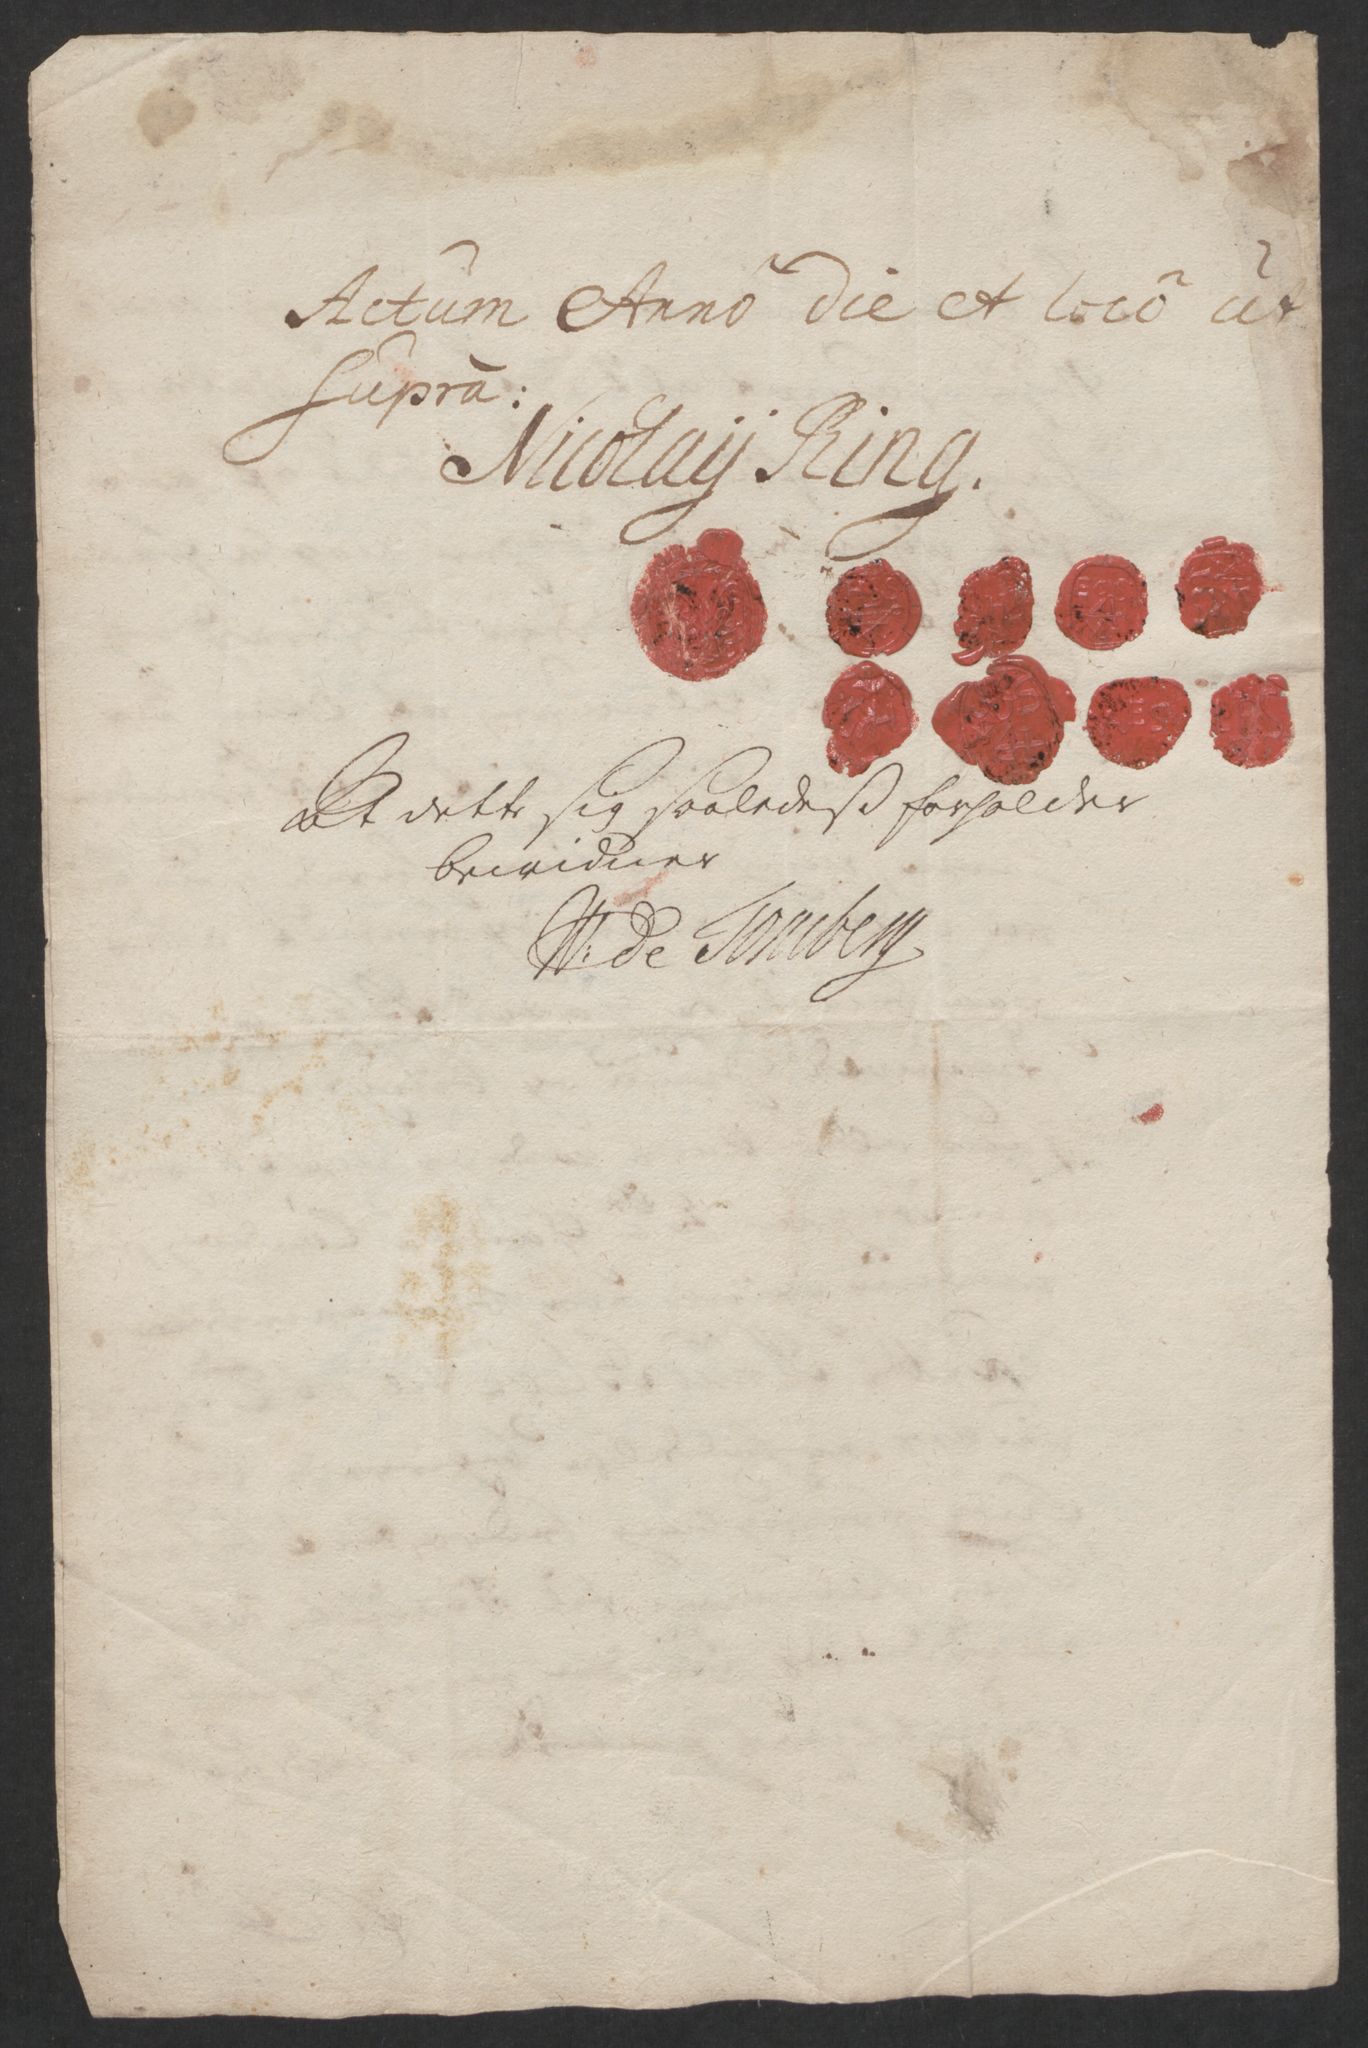 Actum Anno die et loco ut
supra:
Nicolaÿ Ring.
At dette sig saaledeß forholder
bevidner
W: de Tonsberg